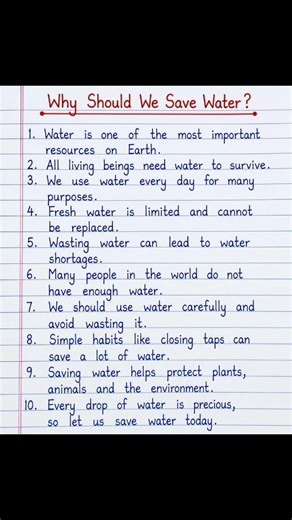 Why Should We Save Water?
1. Water is one of the most important
resources on Earth.
2. All living beings need water to survive.
3. We use water every day for many
purposes.
4. Fresh water is limited and cannot
be replaced.
5. Wasting water can lead to water
shortages.
6. Many people in the world do not
have enough water.
7. We should use water carefully and
avoid wasting it.
8. Simple habits like closing taps can
save a lot of water.
9. Saving water helps protect plants,
animals and the environment.
10. Every drop of water is precious,
so let us save water today.